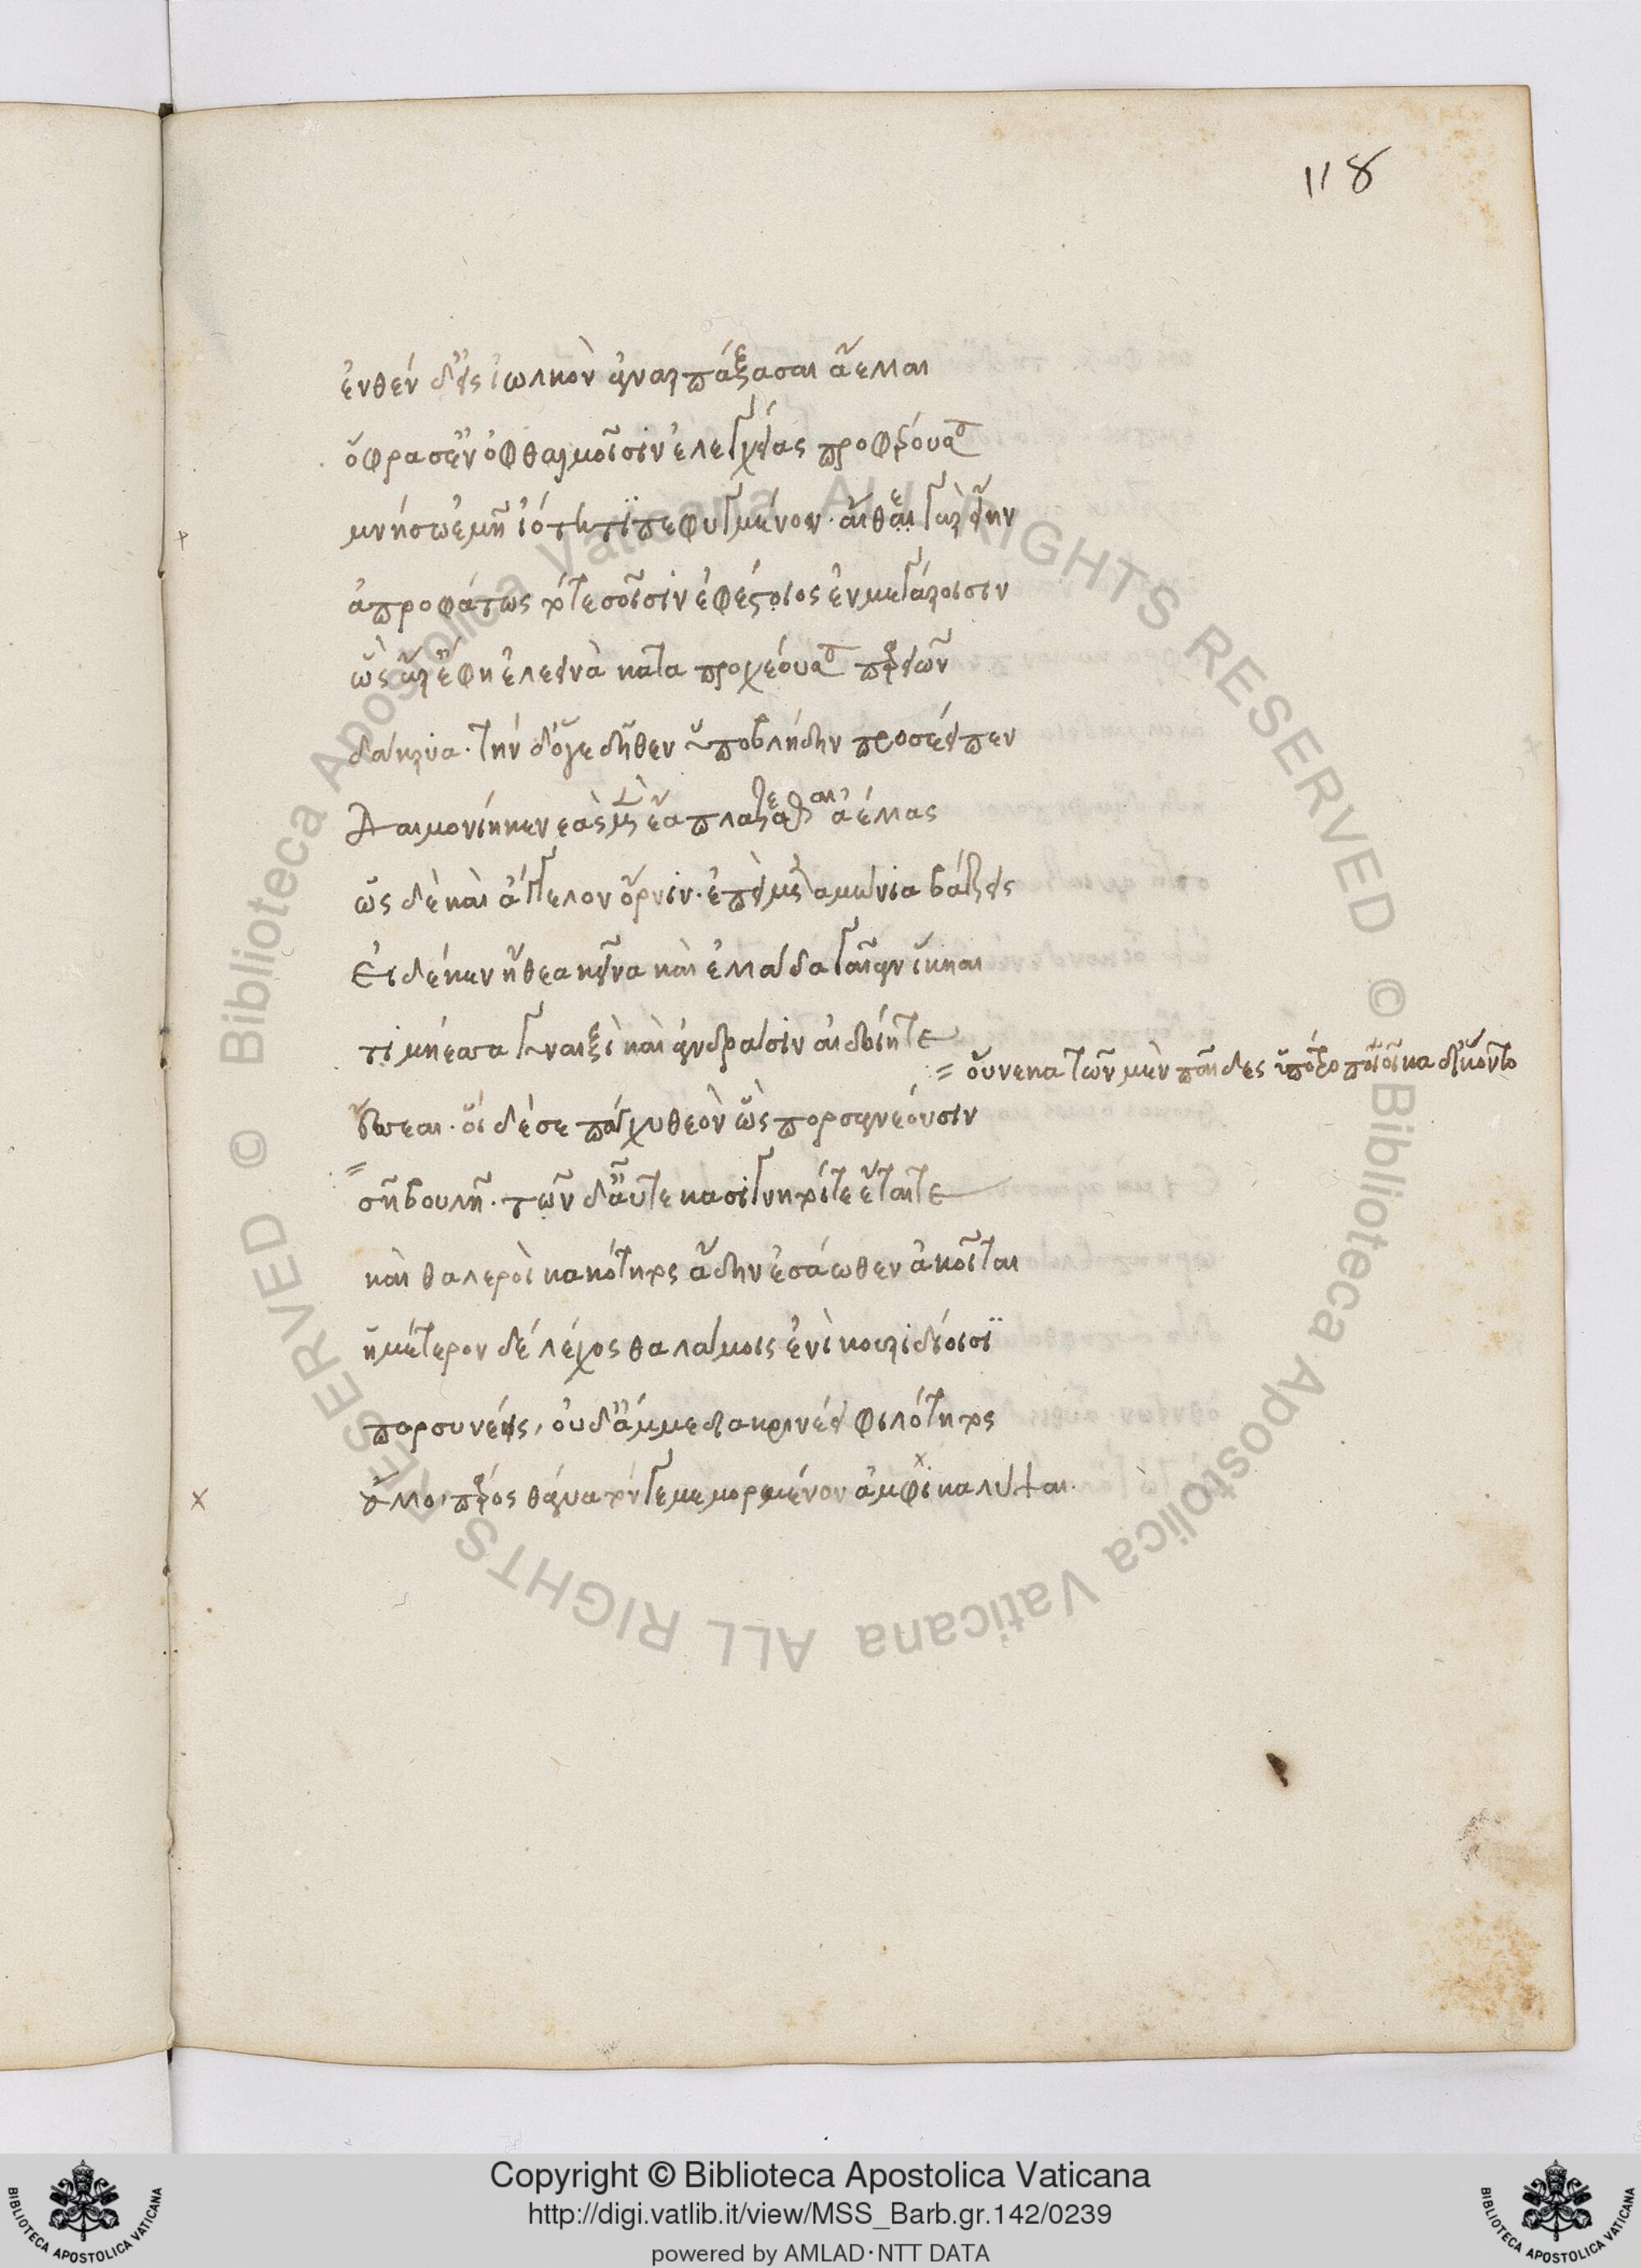 118
ἐνθέν δ' εἰς ἰωλκὸν ἀναρπάξασαι ἄελλαι
ὄφρα σ' ἐν ὀφθαλμοῖσιν ἐλεγχείας προφέρουσα
μνήσω ἐμῇ ἰότητι πεφυγμένον. αἴθε γὰρ εἴην
ἀπροφάτως τότε σοῖσιν ἐφέστιος ἐν μεγάροισιν
ὣς ἄρ' ἔφη ἐλεεινὰ κατα προχέουσα παρειῶν
δάκρυα. τὴν δ' ὅγε δῆθεν ὑποβλήδην προσέειπεν
Δαιμονίη κενεὰς μὲν ἔα πλάζεσθαι ἀέλλας
ὣς δὲ καὶ ἄγγελον ὄρνιν. ἐπεὶ μεταμώνια βάζεις
Εἰ δέ κεν ἤθεα κεῖνα καὶ ἑλλάδα γαῖαν ἵκηαι
τιμήεσσα γυναιξὶ καὶ ἀνδράσιν αἰδοίη τε
= οὕνεκα τῶν μὲν παῖδες ὑπότροποι οἴκαδ' ἵκοντο
ἔσσεαι. οἵ δέ σε πάγχυ θεὸν ὣς πορσανέουσιν
= σῇ βουλῇ. τῶν δ' αὖτε κασίγνητοί τε ἔται τε
καὶ θαλεροὶ κακότητος ἄδην ἐσάωθεν ἀκοῖται
ἡμέτερον δέ λέχος θαλάμοις ἐνὶ κουριδίοισι
πορσυνέεις, οὐδ' ἄμμε διακρινέει φιλότητος
ἄλλο, πάρος θάνατόν γε μεμορμένον ἀμφικαλύψαι.
Copyright © Biblioteca Apostolica Vaticana
http://digi.vatlib.it/view/MSS_Barb.gr.142/0239
powered by AMLAD·NTT DATA
BIBLIOTECA APOSTOLICA VATICANA
BIBLIOTECA APOSTOLICA VATICANA
© Biblioteca Apostolica Vaticana ALL RIGHTS RESERVED
© Biblioteca Apostolica Vaticana ALL RIGHTS RESERVED